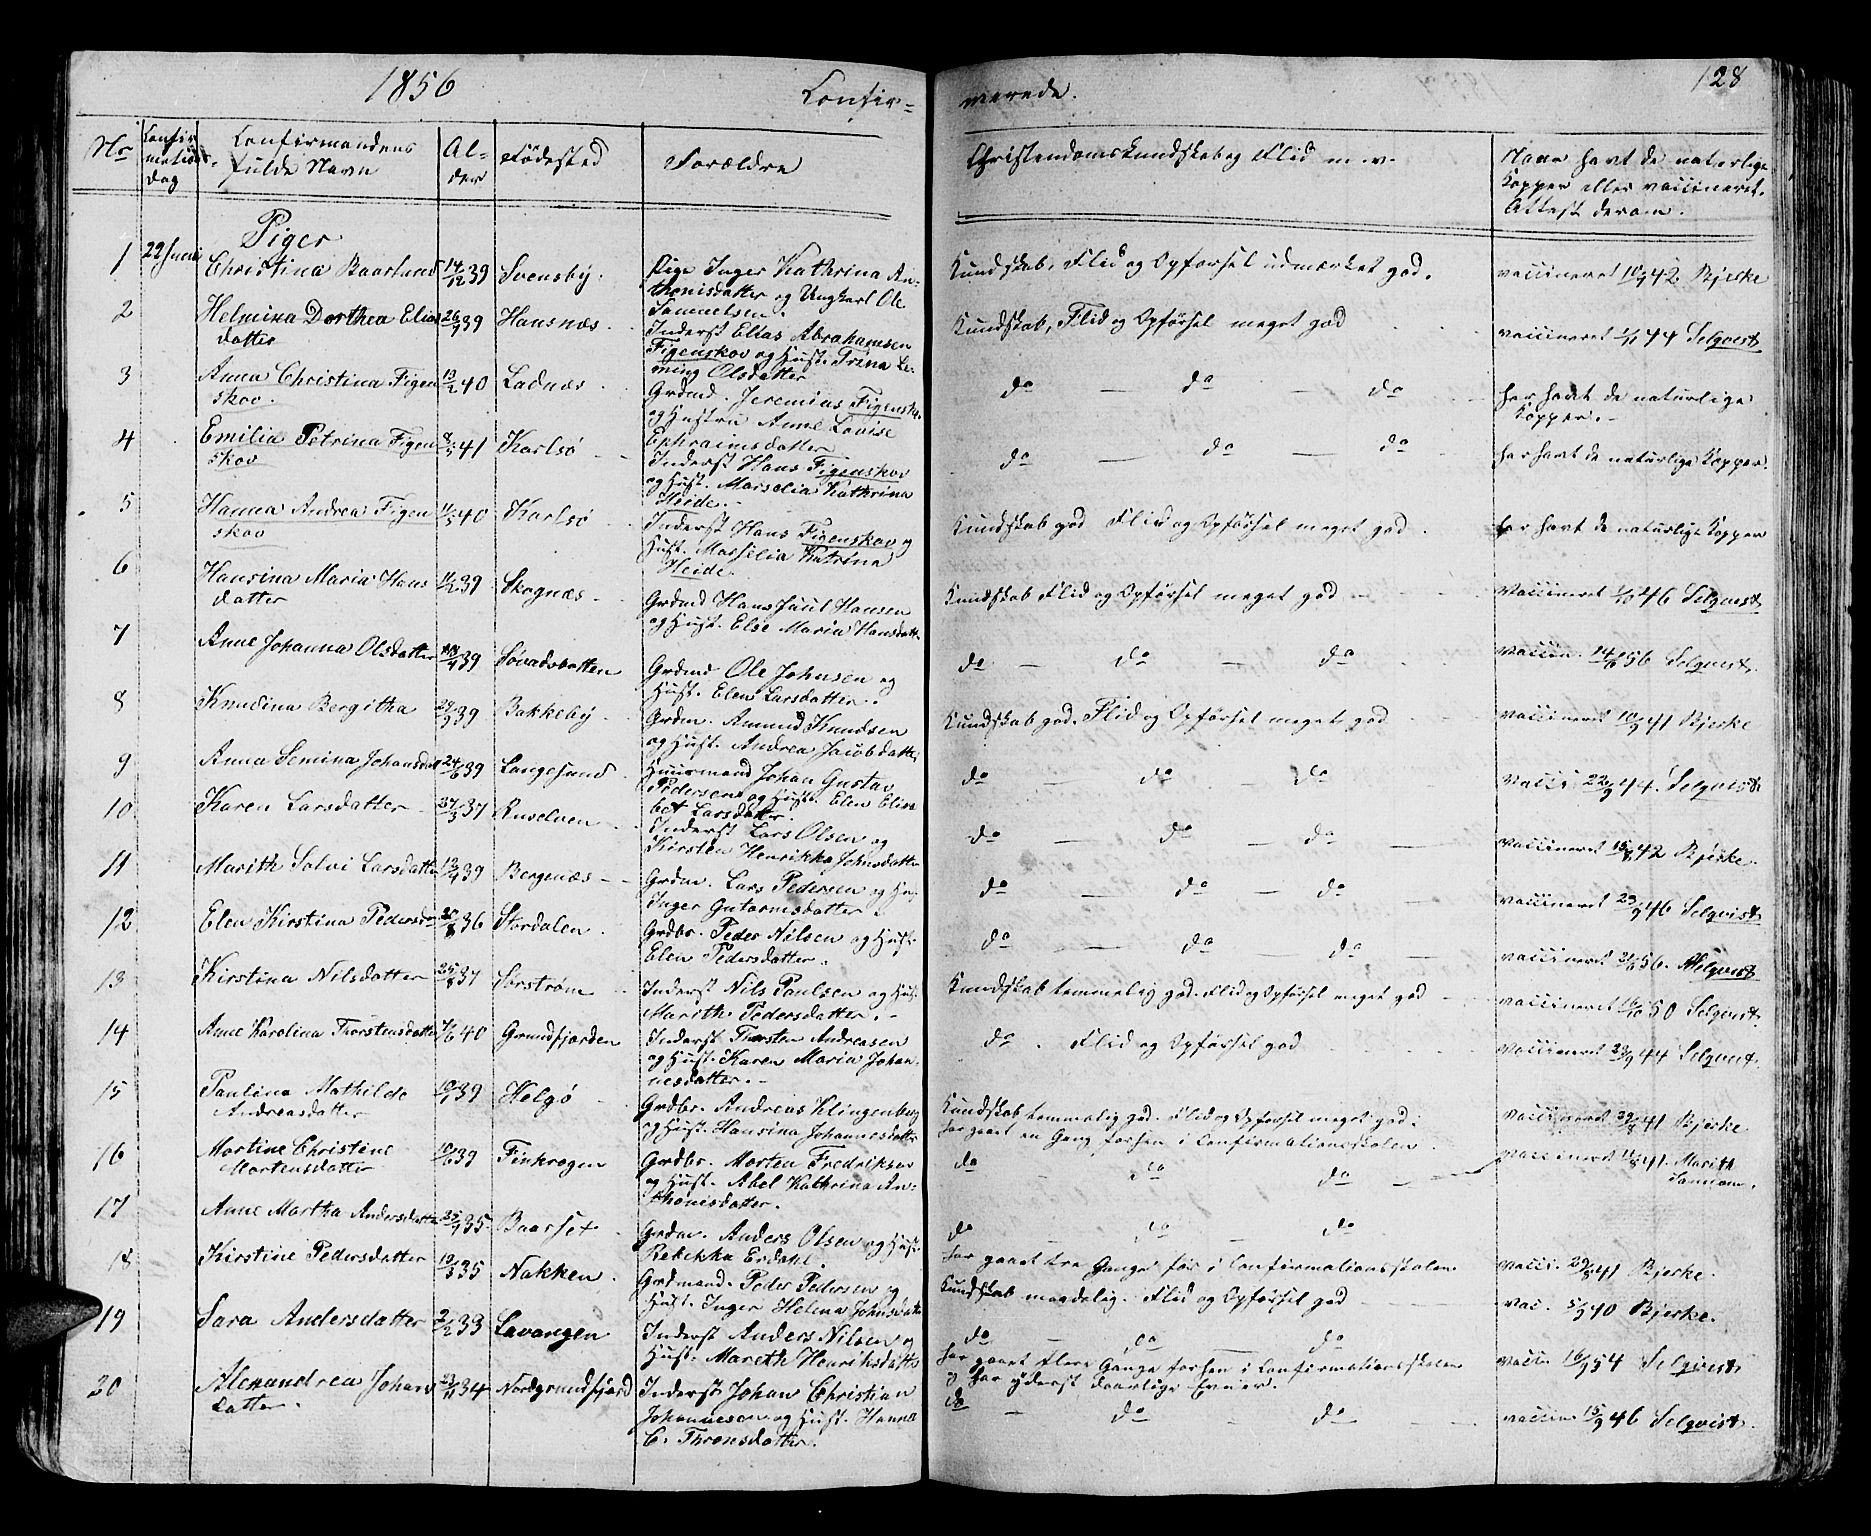 1856
Confir-
merede.
128
Nr
Confir
mations-
dag
Confirmandens
fulde Navn
Al-
der
Fødested
Forældre
Christendomskundskab og Flid m. v.
Naar havt de naturlige
Kopper eller vaccineret.
Attest derom.
Piger
1 22 Juni Christina Baarlund 14/12 39 Svensby.
Pige Inger Kathrina An-
thonisdatter og Ungkarl Ole
Samuelsen.
Kundskab, Flid og Opførsel udmærket god.
vaccineret 10/9 42 Bjerke
2 Helmina Dorthea Elias
datter 39 Hansnæs
Inderst Elias Abrahamsen
Figenskov og Hust. Trina Le-
ming Olsdatter
Kundskab, Flid og Opførsel meget god
vaccineret 44 Selqvist
3 Anna Christina Figen
skov. 13/2 40 Ladnæs
Grdmd. Jeremias Figensko.
og Hustru Anne Lovise
Ephraimsdatter
do — do — do
har havt de naturlige
Kopper.
4 Emilia Petrina Figen
skov 41 Karlsø
Inderst Hans Figenskov
og Hust. Marselia Kathrina
Heide.
do — do — do
har havt de naturlige Kopper.
5 Hanna Andrea Figen
skov 40 Karlsø
Inderst Hans Figenskov og
Hust. Marselia Katrina
Heide.
Kundskab god Flid og Opførsel meget god
har havt de naturlige Kopper
6 Hansina Maria Hans
datter 39 Skognæs
Grdmd Hans Juul Hansen
og Hust. Else Maria Hansdatt.
Kundskab Flid og Opførsel meget god
vaccineret 46 Selqvist
7 Anne Johanna Olsdatter 39
Grdmd Ole Johnsen og
Hust. Elen Larsdatter.
do — do — do
vaccin. 14/6 56 Selqvist.
8 Knudina Bergitha 29/9 39 Bakkeby
Grdm. Amund Knudsen
og Hust. Andrea Jacobdatte.
Kundskab god. Flid og Opførsel meget god
vaccineret 10/9 41 Bjerke
9 Anna Semina Johansdat 24/6 39 Langesund
Huusmand Johan Gustav
Pedersen og Hust. Elen Elisa
bet Larsdatter.
do — do — do
vacci 22/9 44. Selqvist.
10 Karen Larsdatter 27/3 37 Ruselven
Inderst Lars Olsen og
Kirsten Henrikka Johnsdatter
do — do — do
vaccineret 15/8 42 Bjerke.
11 Marith Solvi Larsdatter 39 Bergenæs
Grdm. Lars Pedersen og Hu.
Inger Gutormsdatter
do — do — do
vaccineret 23/9 46 Selqvist.
12 Elen Kirstina Pedersd 36 Stordalen
Grdbr. Peder Nilsen og Hust.
Elen Pedersdatter.
do — do — do
vaccineret 56. Selqvist
13 Kirstina Nilsdatter 25/8 37 Sørstrøm
Inderst Nils Paulsen og Hus.
Marith Pedersdatter.
Kundskab temmelig god. Flid og Opførsel meget god
vaccineret 50 Selqvist.
14 Anne Karolina Thorstensdatter 40 Grundfjorden
Inderst Thorsten Andreasen
og Hust. Karen Maria Johan-
nesdatter.
do. Flid og Opførsel god
vaccineret 23/9 44 Selqvist.
15 Paulina Mathilde
Andreasdatter 39 Helgø
Grdbr. Andreas Klingenberg
og Hust. Hansina Johannesdatter
Kundskab temmelig god. Flid og Opførsel meget god.
har gaaet en Gang forhen i Confirmationsskolen
vaccineret 29/8 41 Bjerke.
16 Martine Christine
Mortensdatter 39 Finkrogen
Grdbr. Morten Fredriksen
og Hust. Abel Kathrina An-
thonisdatter.
do — do — do
vaccineret 41. Marith
17 Anne Martha Andersdatter 35 Baarset
Grdm. Anders Olsen og Hust.
Rebekka Erdahl.
do — do — do
har gaaet tre Gange før i Confirmationsskolen
vacci. 29/8 41 Bjerke.
18 Kirstine Pedersdatter 19/3 35 Nakken
Grdmand. Peder Pedersen og
Hust. Inger Helena Johnsdatte
Kundskab maadelig. Flid og Opførsel god
vac. 5/9 40 Bjerke.
19 Sara Andersdatter 2/2 33 Lavangen
Inderst Anders Nilsen og
Hust. Mareth Henriksdatte
do — do — do
har gaaet flere Gange forhen i Confirmationsskolen
og har yderst daarlige Evner.
vaccin 16/9 54 Selqvist.
20 Alexandrea Johans
datter. 34 Nordgrundfjord
Inderst Johan Christian
Johannesen og Hust. Hanna
C. Thronsdatter.
do — do — do
vaccin 15/9 46 Selqvist.